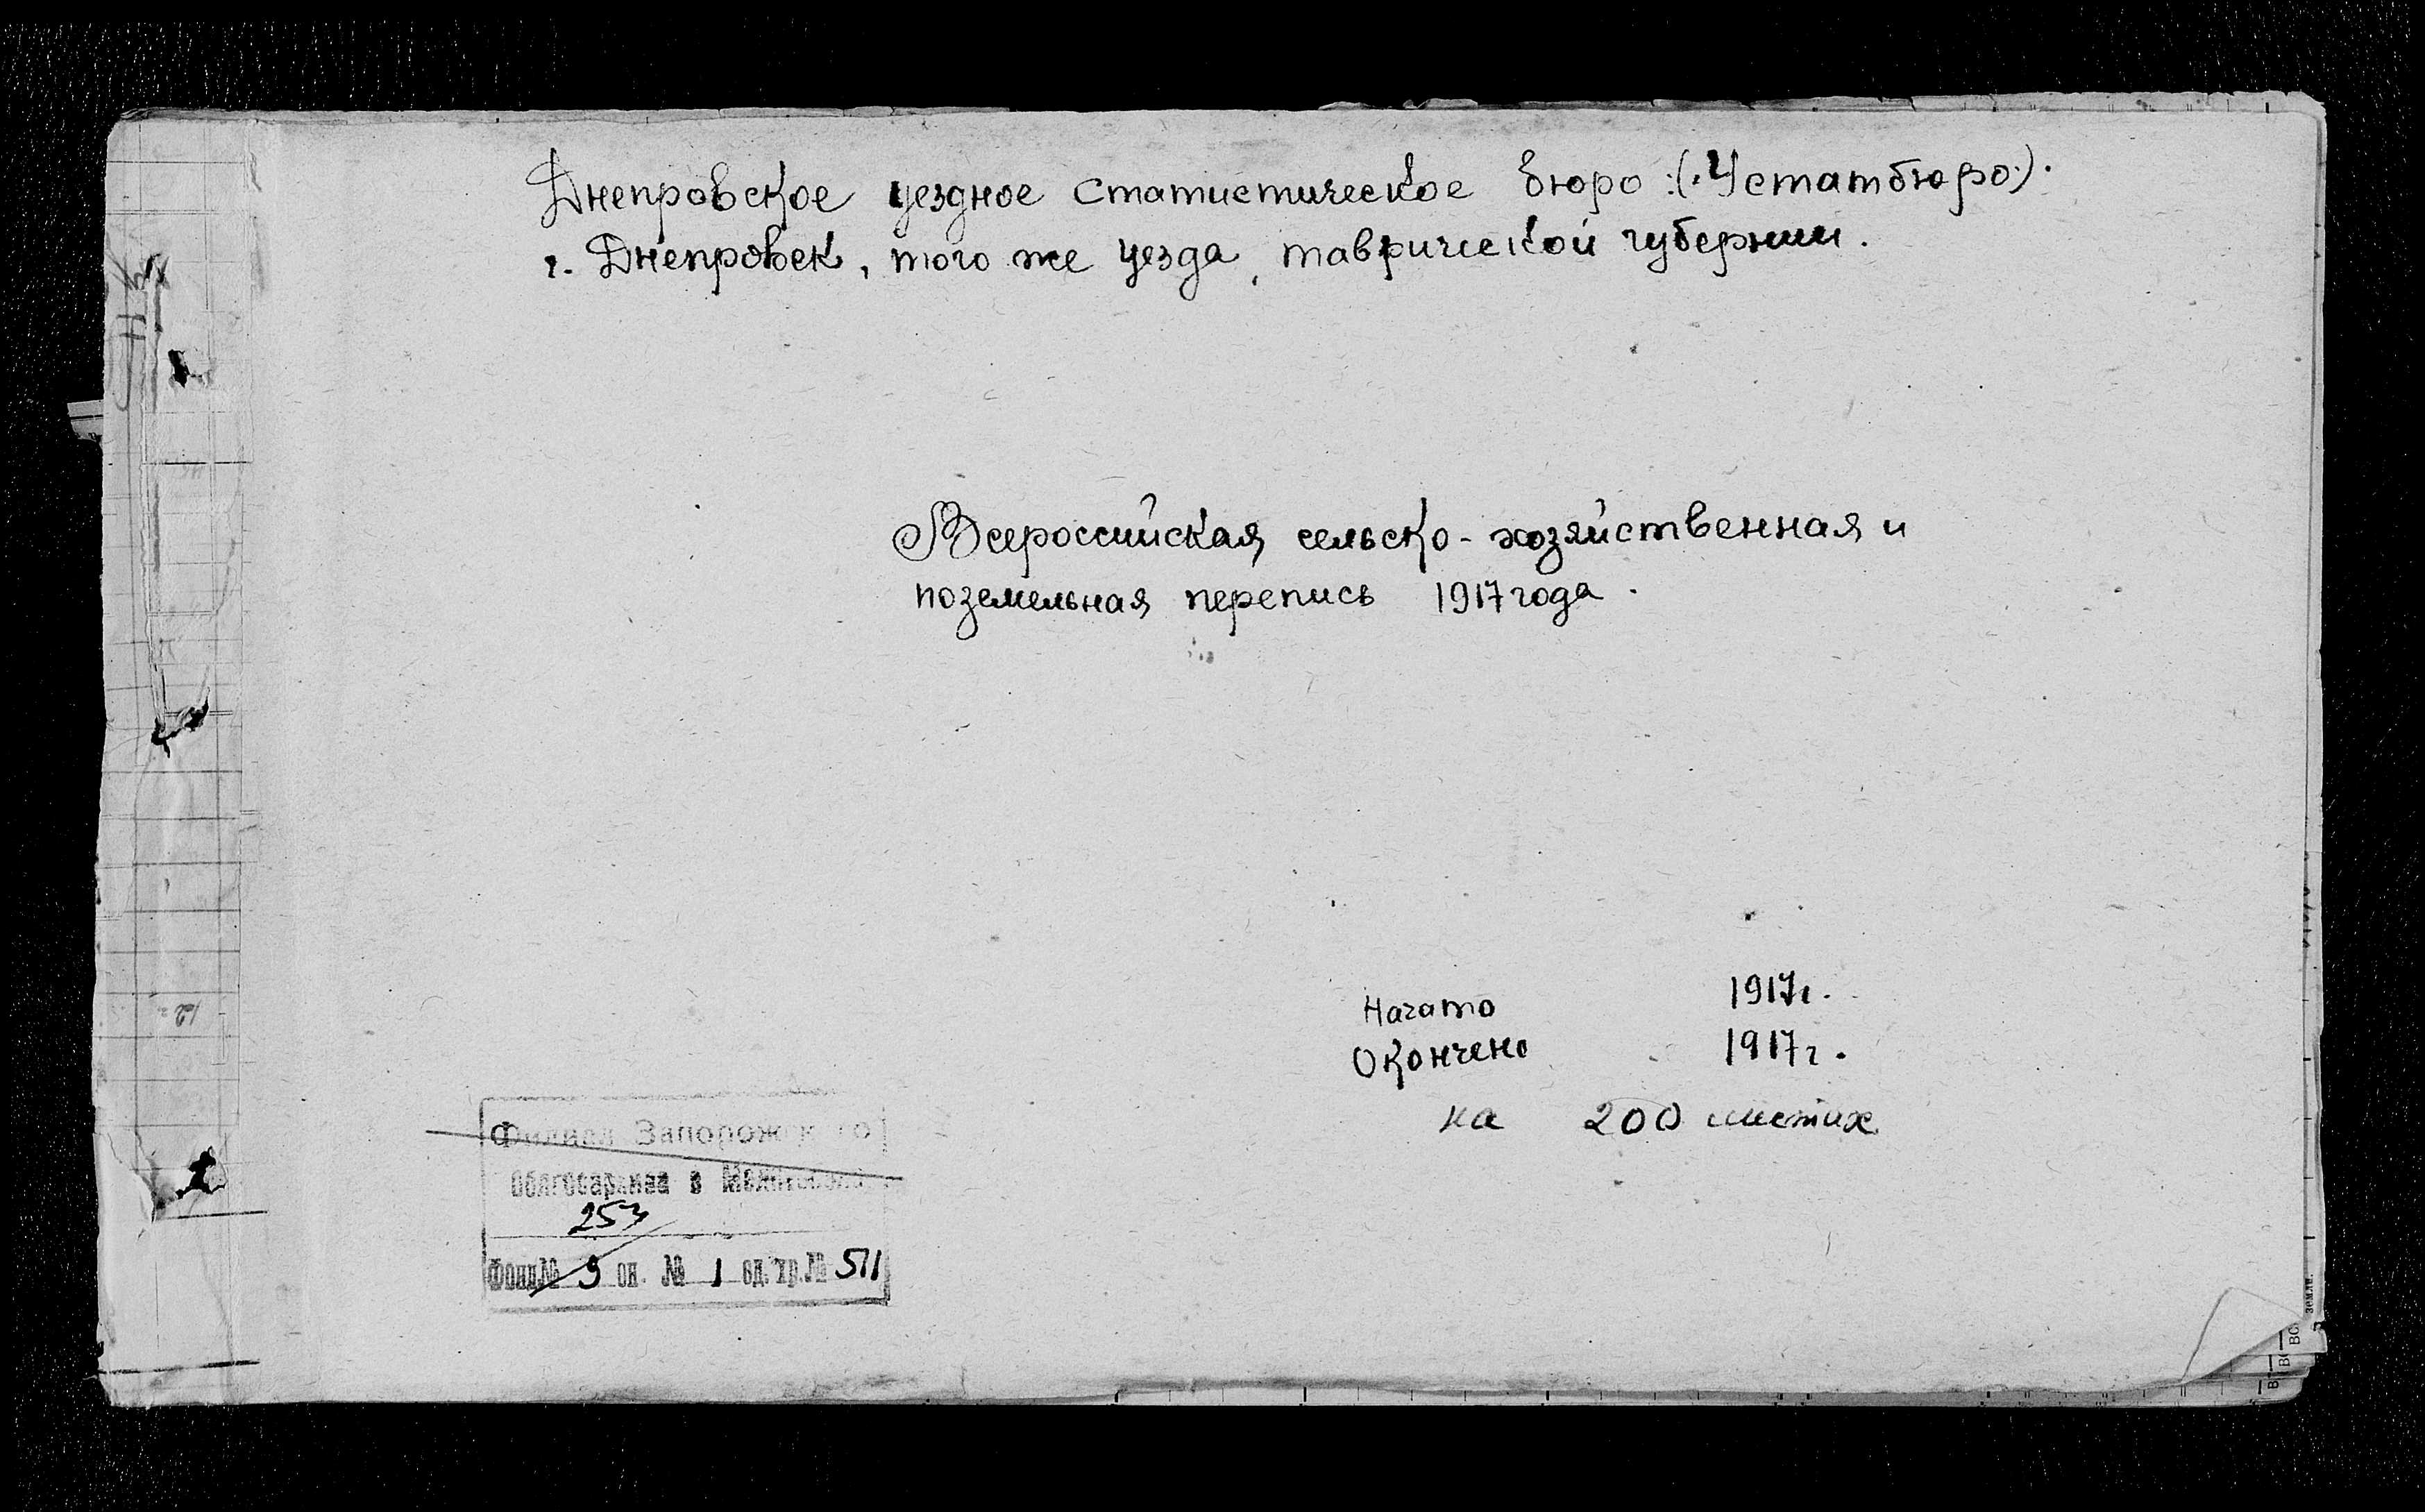 Днепровское уездное статистическое бюро (Устатбюро).
г. Днепровск, того же уезда, таврической губернии.
Всероссийская сельско-хозяйственная и
поземельная перепись 1917 года.
Начато 1917г.
Окончено 1917г.
на 200 листах
Филиал Запорожского
Облгосархива в
253
Фонд№ 9 оп. № 1 ед.хр.№ 511